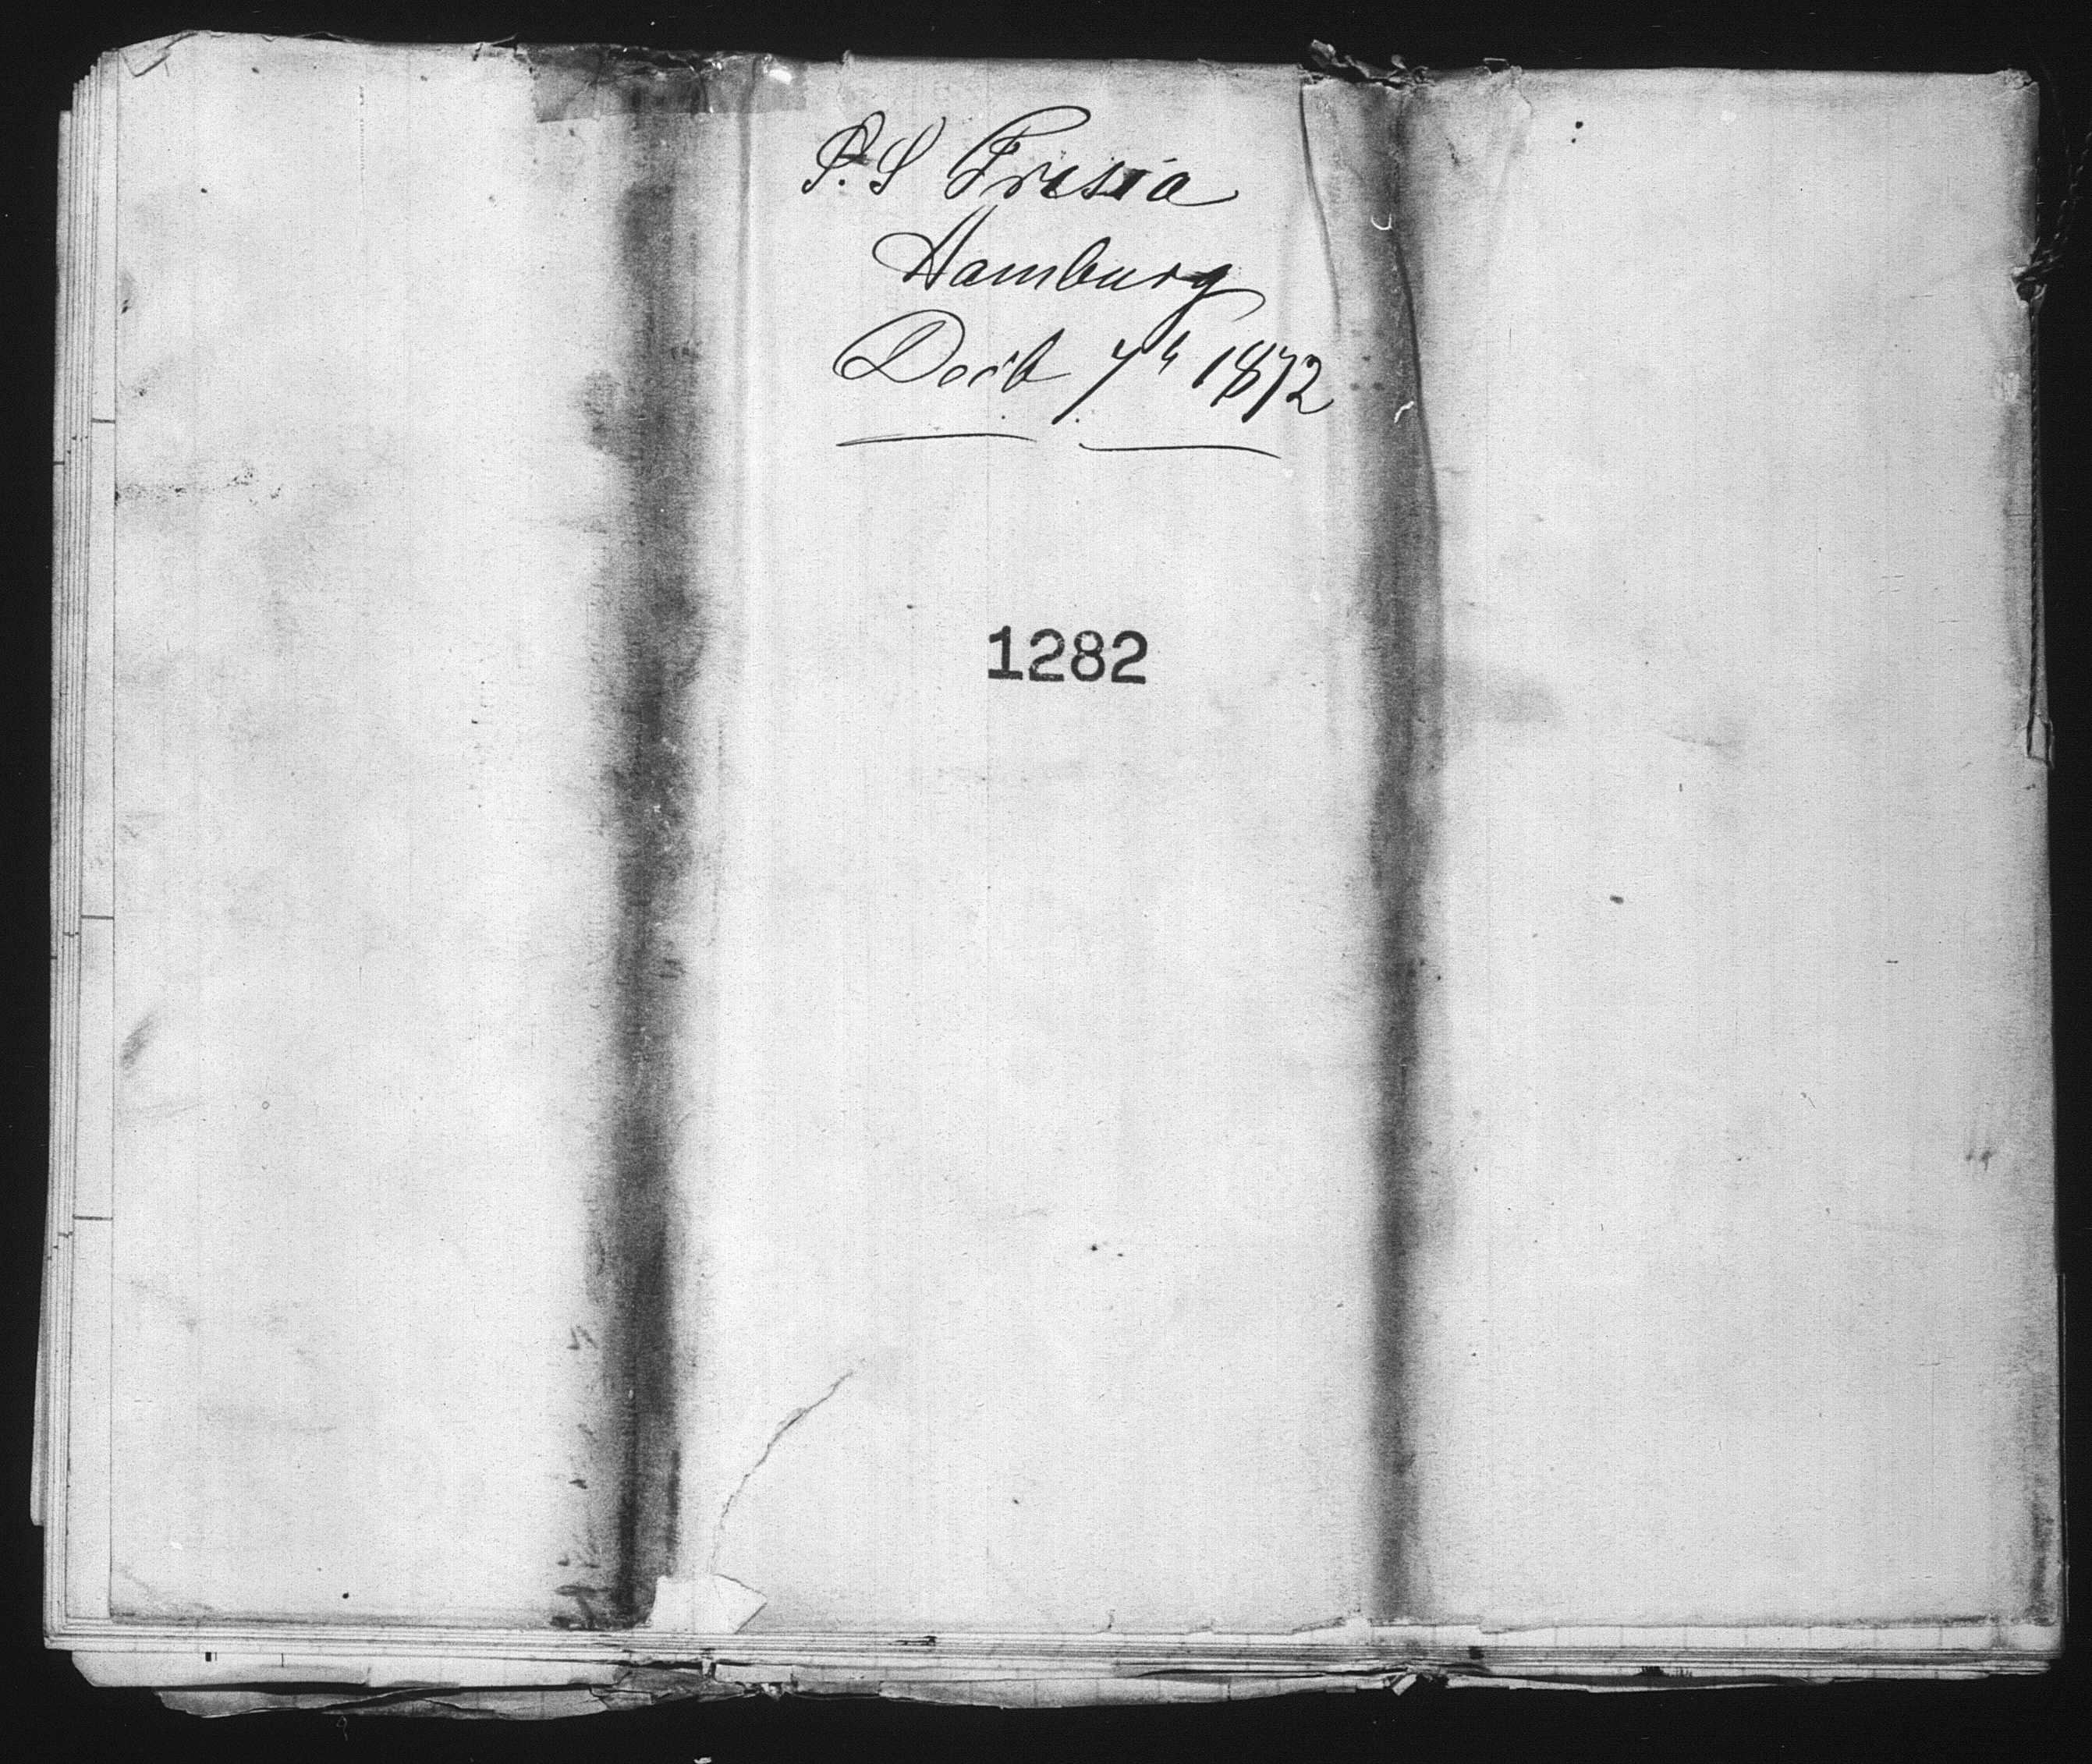 S.S Frisia
Hamburg
Decb 7th 1872
1282